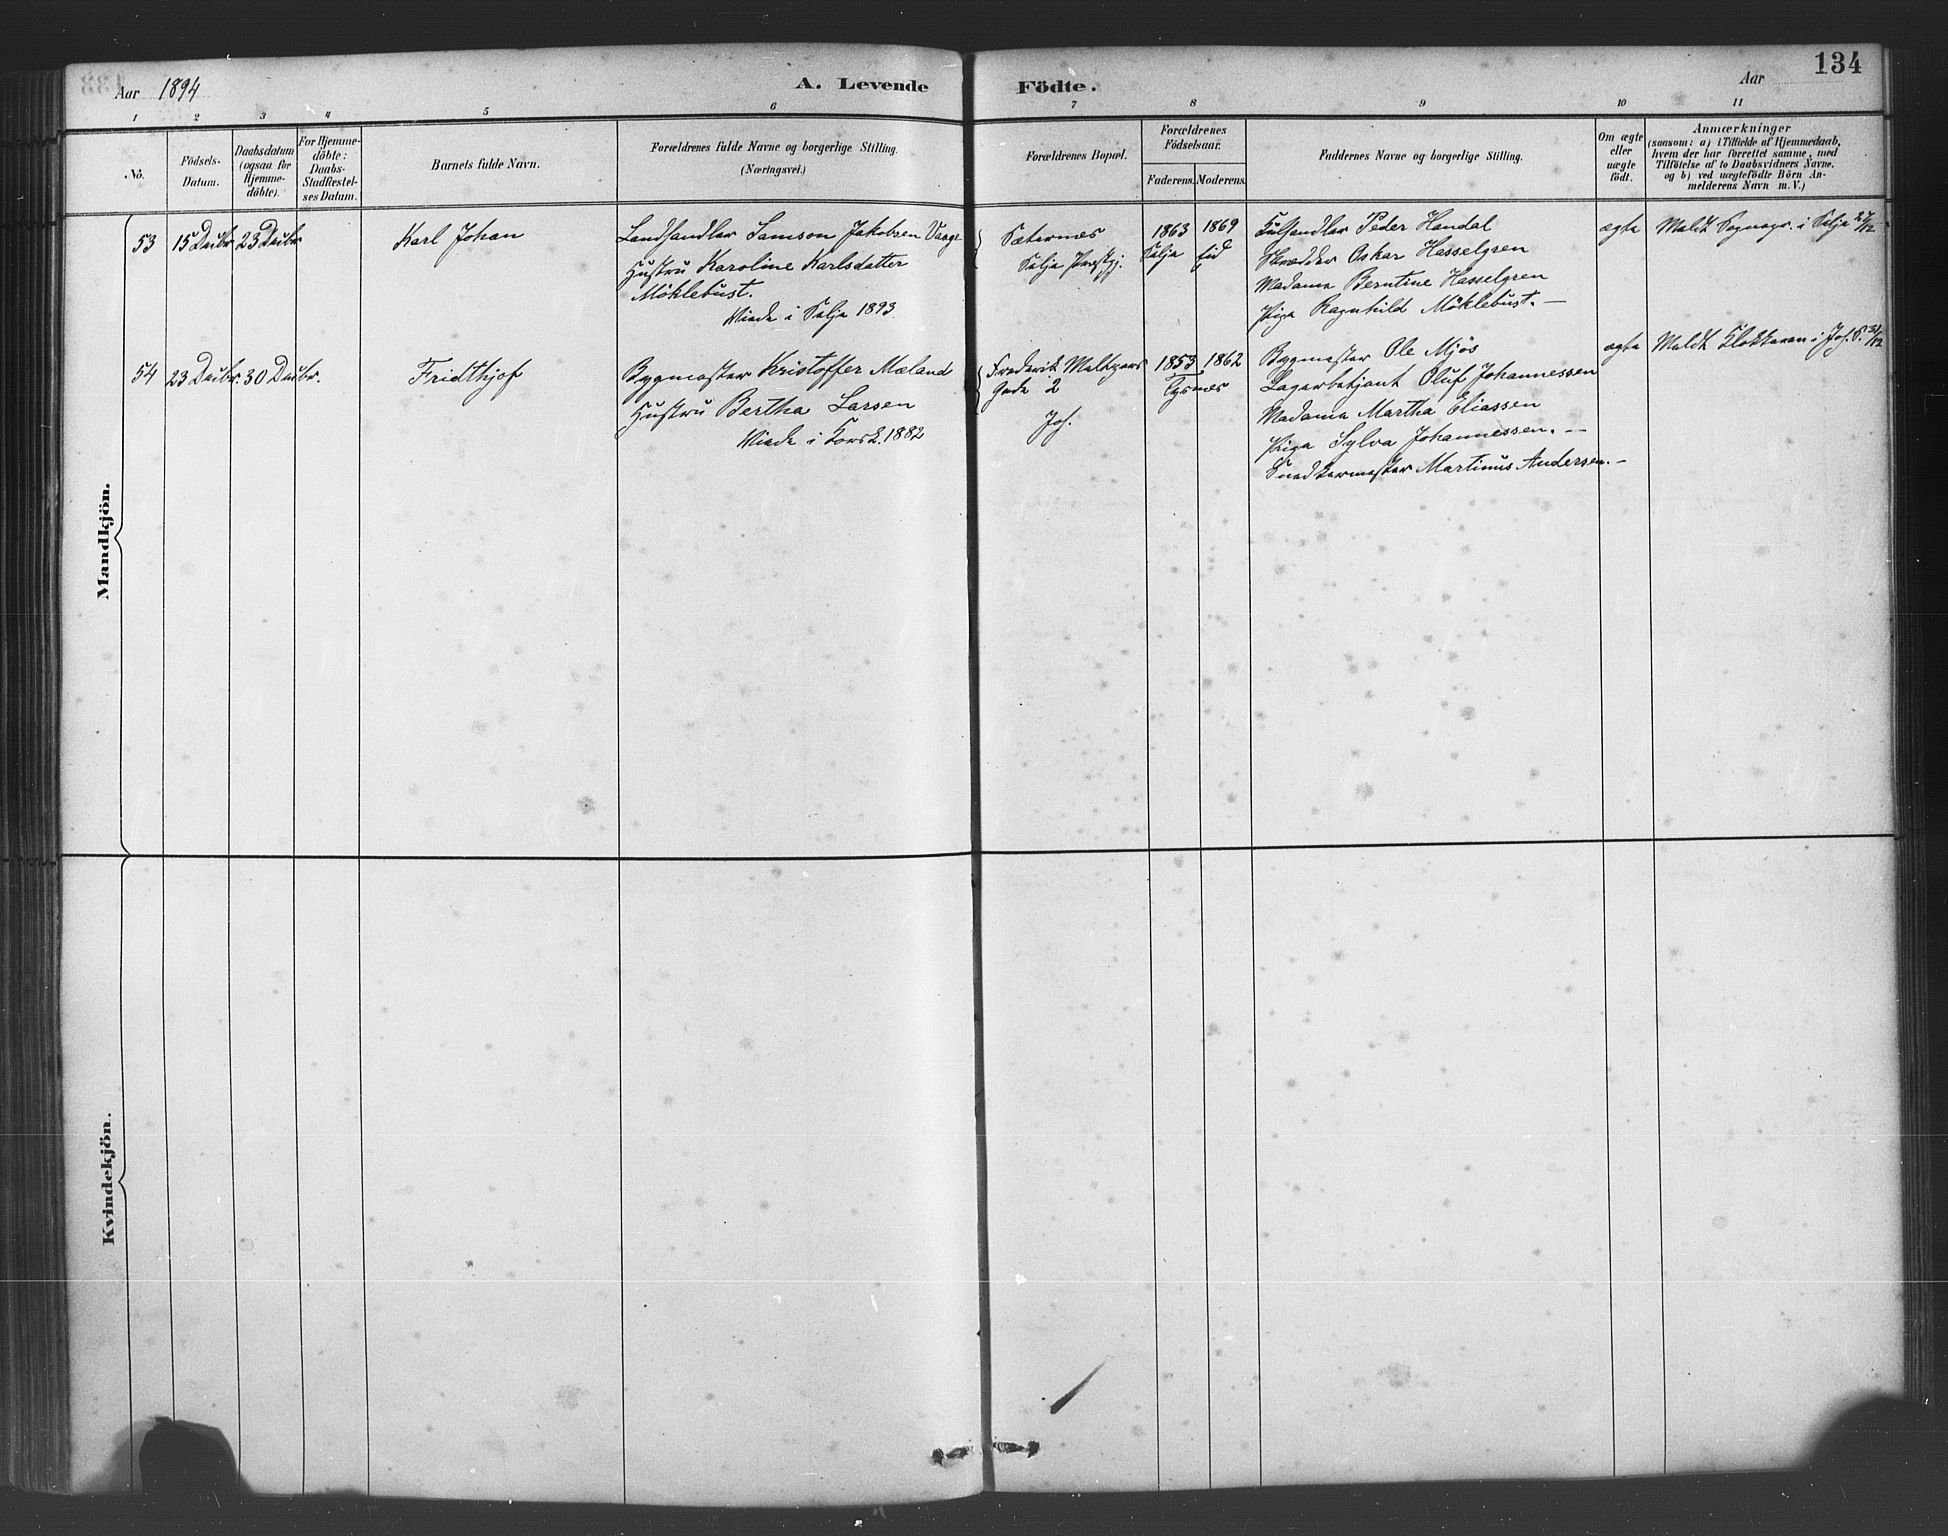 Aar 1894
A. Levende
Födte.
Aar
134
1 2 3 4 5 6 7 8 9 10 11
No.
Födsels-
Datum.
Daabsdatum
(ogsaa for
Hjemme-
döbte).
For Hjemme-
döbte:
Daabs-
Stadfestel-
ses Datum.
Barnets fulde Navn.
Forældrenes fulde Navne og borgerlige Stilling.
(Næringsvei.)
Forældrenes Bopæl.
Forældrenes
Födselsaar.
Faderens. Moderens.
Faddernes Navne og borgerlige Stilling.
Om ægte
eller
uægte
födt.
Anmærkninger
(saasom: a) i Tilfælde af Hjemmedaab,
hvem der har forrettet samme, med
Tilföielse af to Daabsvidners Navne.
og b) ved uægtefödte Börn An-
melderens Navn m. V.)
Mandkjön.
53
15 Decbr
23 Decbr
Karl Johan
Landhandler Samson Jakobsen Vaage
Hustru Karoline Karlsdatter
Möklebust.
Viede i Selje 1893
Sæternæs
Selje Prestgj.
1863
Selje
1869
Eid
Peder Handal
Skrædder Oskar Hasselgren
Madame Berntine Hasselgren
Pige Ragnhild Möklebust. —
ægte
Meldt Sognepr. i Selje 27/12
54
23 Decbr
30 Decbr.
Fridthjof
Bygmester Kristoffer Mæland
Hustru Bertha Larsen
Viede i Korsk. 1882
Frederik Meltzers
Gade 2
Joh.
1853
1862
Tysnæs
Bygmester Ole Mjös
Lagerbetjent Oluf Johannessen
Madame Martha Eliassen
Pige Sylva Johannessen. —
Snedkermester Martinus Andersen. —
ægte
Meldt Klokkeren i Joh. S. 31/12
Kvindekjön.